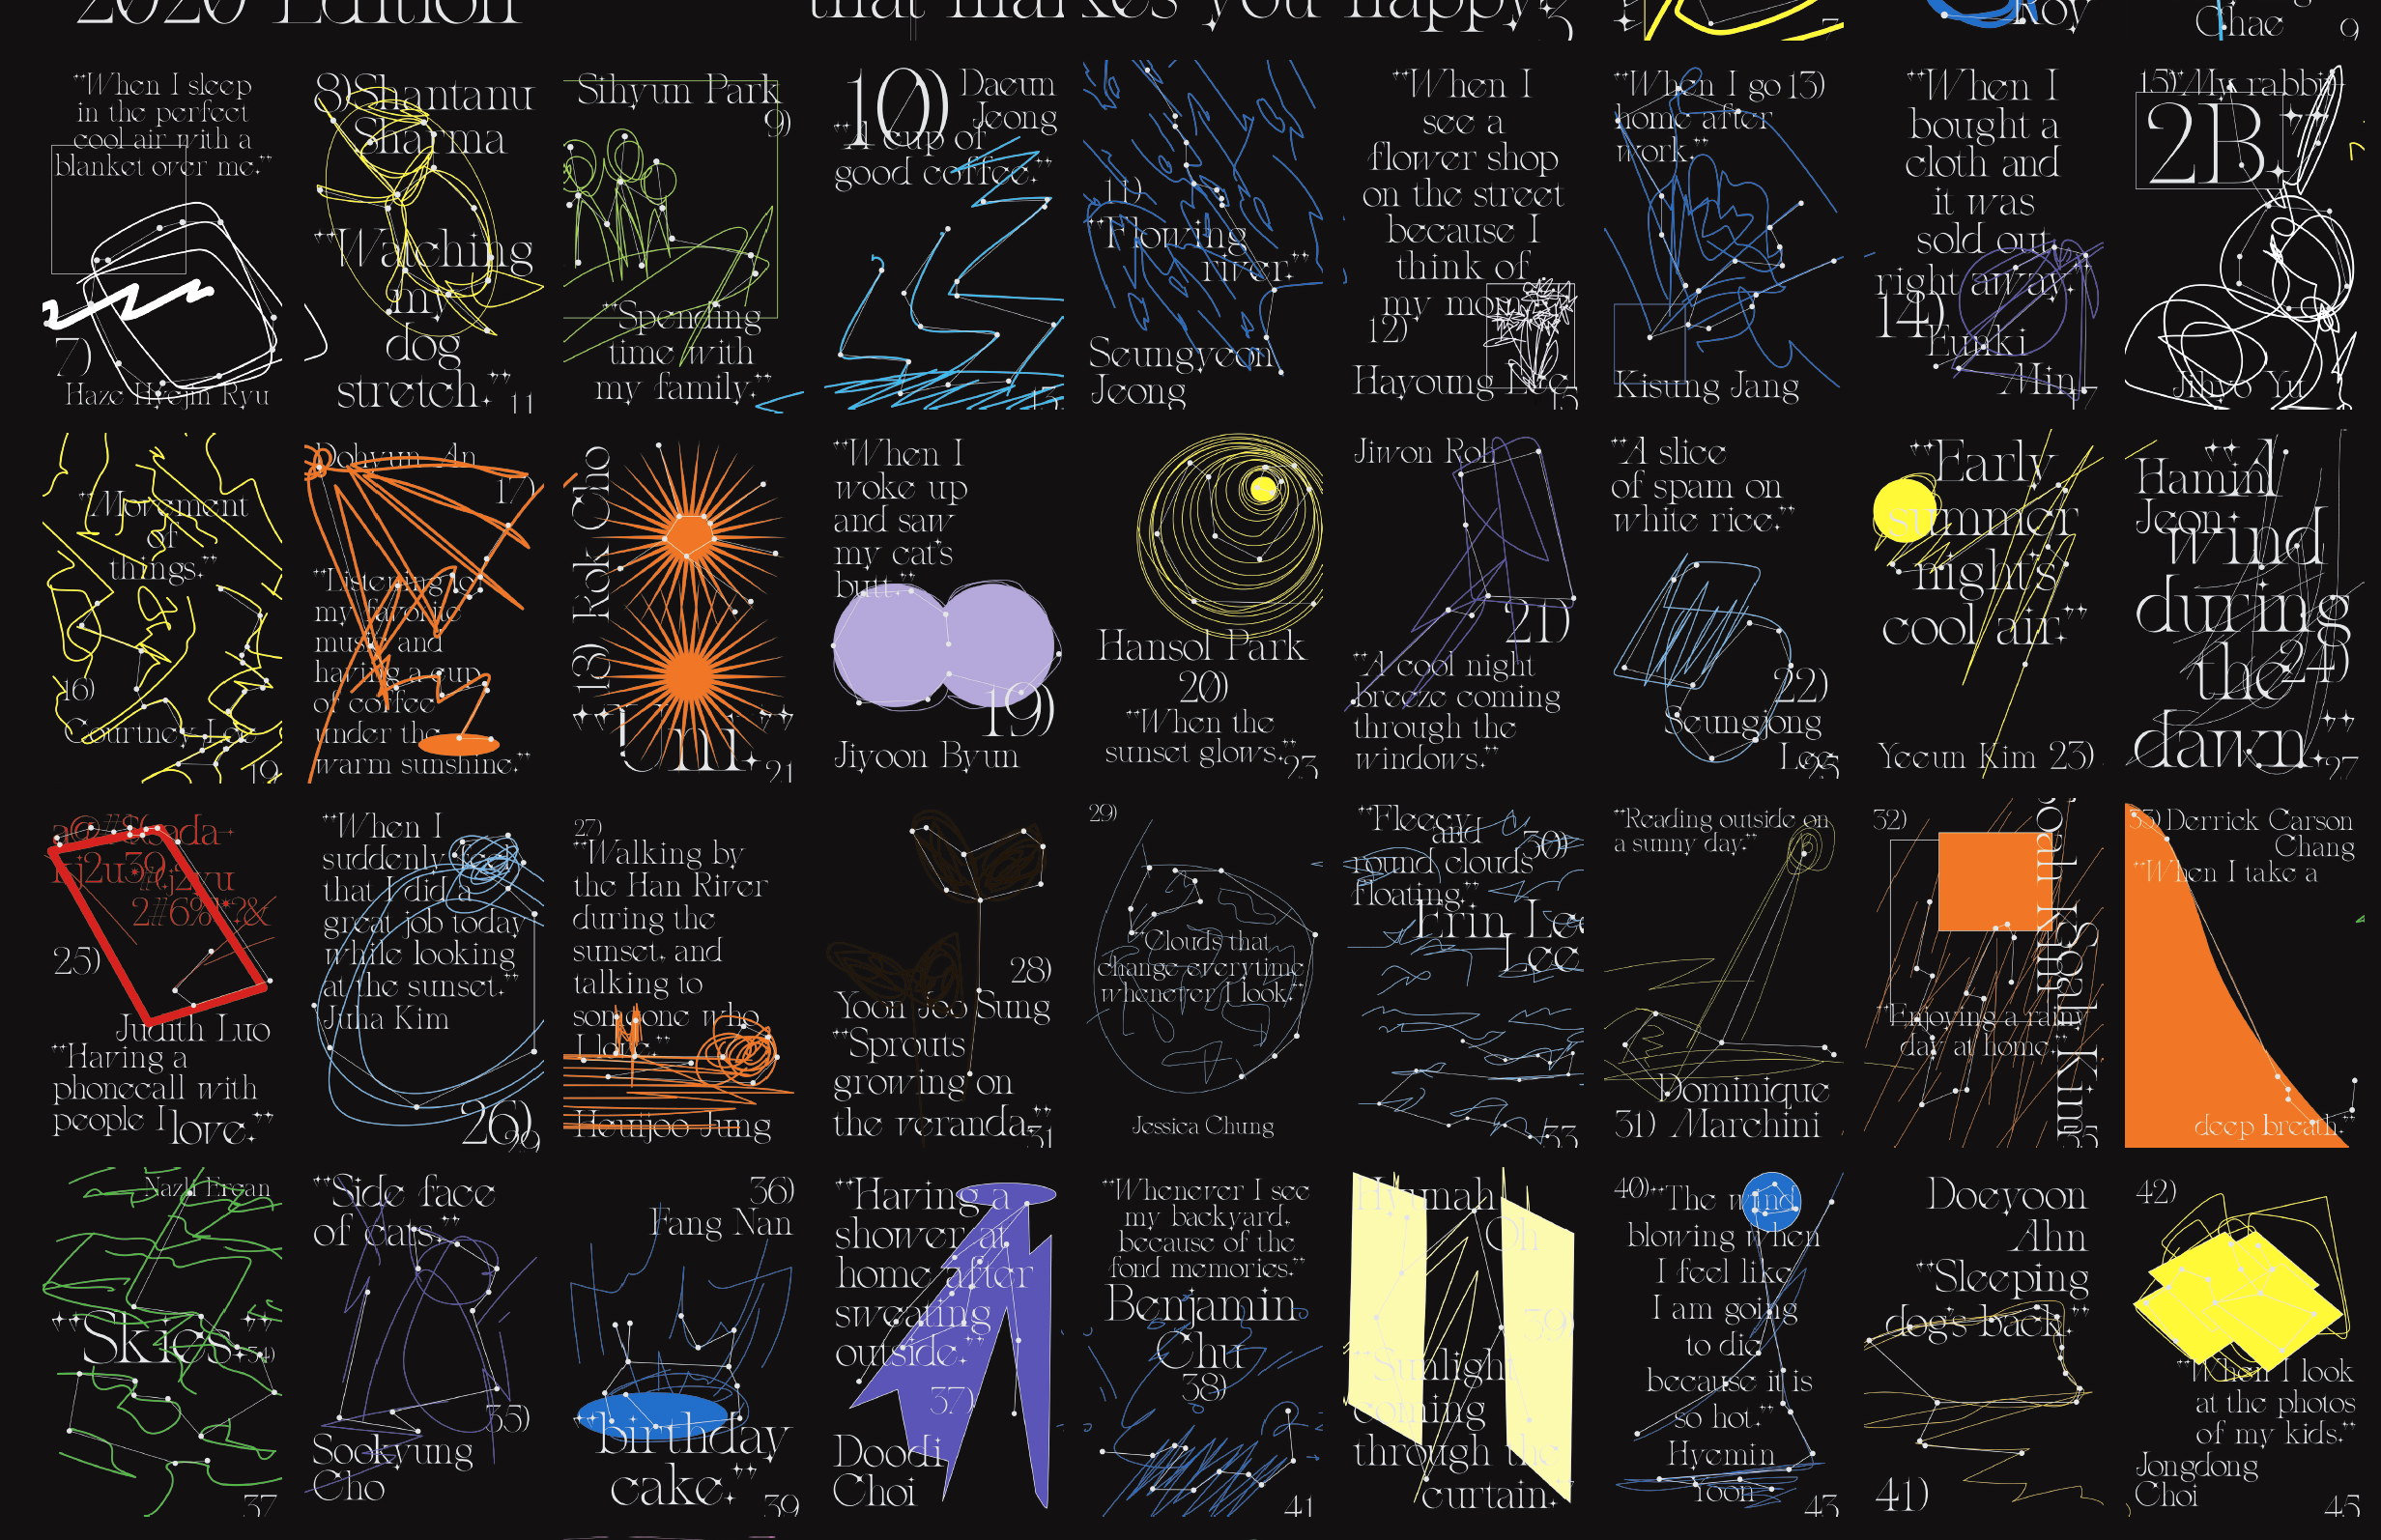 2020 Edition
that makes you happy.
5
7
Roy
Chae
9
“When I sleep
in the perfect
cool air with a
blanket over me.”
7)
Haze Hyejin Ryu
8) Shantanu
Sharma
“Watching
my
dog
stretch.”
11
Sihyun Park
9)
“Spending
time with
my family.”
10) Daeun
Jeong
“A cup of
good coffee.”
13
11)
“Flowing
river.”
Seungyeon
Jeong
“When I
see a
flower shop
on the street
because I
think of
my mom.”
12)
Hayoung Lee
15
“When I go 13)
home after
work.”
Kisung Jang
“When I
bought a
cloth and
it was
sold out
right away.”
14)
Eunki
Min
17
15) “My rabbit
2B.”
Jihyo Yu
“Movement
of
things.”
16)
Courtney Lee
19
Dohyun An
17)
“Listening to
my favorite
music and
having a cup
of coffee
under the
warm sunshine.”
18) Rok Cho
“Uni.”
21
“When I
woke up
and saw
my cat's
butt.”
19)
Jiyoon Byun
Hansol Park
20)
“When the
sunset glows.”
23
Jiwon Roh
21)
“A cool night
breeze coming
through the
windows.”
“A slice
of spam on
white rice.”
22)
Seungjong
Lee
25
“Early
summer
night's
cool air.”
Yeeun Kim 23)
Hamin
Jeon
“A
wind
during
the
24)
dawn.”
27
25)
Judith Luo
“Having a
phonecall with
people I love.”
“When I
suddenly feel
that I did a
great job today
while looking
at the sunset.”
Juha Kim
26)
29
27)
“Walking by
the Han River
during the
sunset, and
talking to
someone who
I love.”
Heuijoo Jung
28)
Yoon Joo Sung
“Sprouts
growing on
the veranda.”
31
29)
“Clouds that
change everytime
whenever I look.”
Jessica Chung
“Fleecy
and
30)
round clouds
floating.”
Erin Lee
Lee
33
“Reading outside on
a sunny day.”
Dominique
31) Marchini
32)
Soah Kim
Soah Kim
“Enjoying a rainy
day at home.”
35
33) Derrick Carson
Chang
“When I take a
deep breath.”
Nazli Ercan
“Skies.”
34)
37
“Side face
of cats.”
35)
Sookyung
Cho
36)
Fang Nan
“birthday
cake.”
39
“Having a
shower at
home after
sweating
outside.”
37)
Doodi
Choi
“Whenever I see
my backyard,
because of the
fond memories.”
Benjamin
Chu
38)
41
Hyunah
Oh
39)
“Sunlight
coming
through the
curtain.”
40) “The wind
blowing when
I feel like
I am going
to die
because it is
so hot.”
Hyemin
Yoon
43
Doeyoon
Ahn
“Sleeping
dog's back.”
41)
42)
“When I look
at the photos
of my kids.”
Jongdong
Choi
45